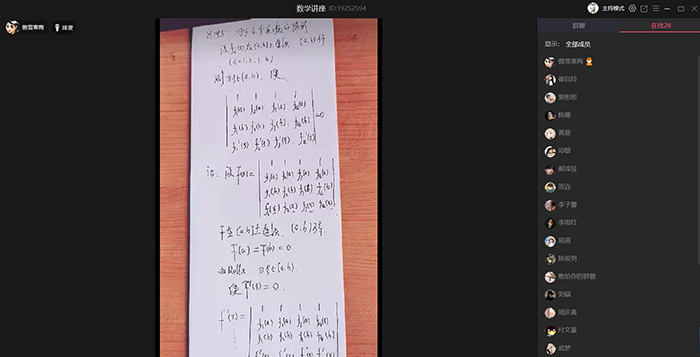 数学讲座 ID:19252594
主持模式
傲雪寒梅 排麦
群聊 在线28
显示: 全部成员
傲雪寒梅
崔自玲
郭彤彤
陈娜
黄意
邓敏
郝淳昱
贺垚
李子馨
李雨红
易茜
陈俊男
败给你的骄傲
刘瑞
周庆喜
付文豪
武梦
(i=1,2,3,4)
则∃ξ∈(a,b), 使
1 1 1 1
f₁(a) f₂(a) f₃(a) f₄(a)
f₁(b) f₂(b) f₃(b) f₄(b)
f₁'(ξ) f₂'(ξ) f₃'(ξ) f₄'(ξ)
=0
证: 设 F(x)=
1 1 1 1
f₁(a) f₂(a) f₃(a) f₄(a)
f₁(b) f₂(b) f₃(b) f₄(b)
f₁(x) f₂(x) f₃(x) f₄(x)
F在[a,b]上连续, (a,b)可导
F(a)=F(b)=0.
∃ξ∈(a,b).
使F'(ξ)=0.
F'(x)=
1 1 1 1
f₁(a) f₂(a) f₃(a) f₄(a)
f₁(b) f₂(b) f₃(b) f₄(b)